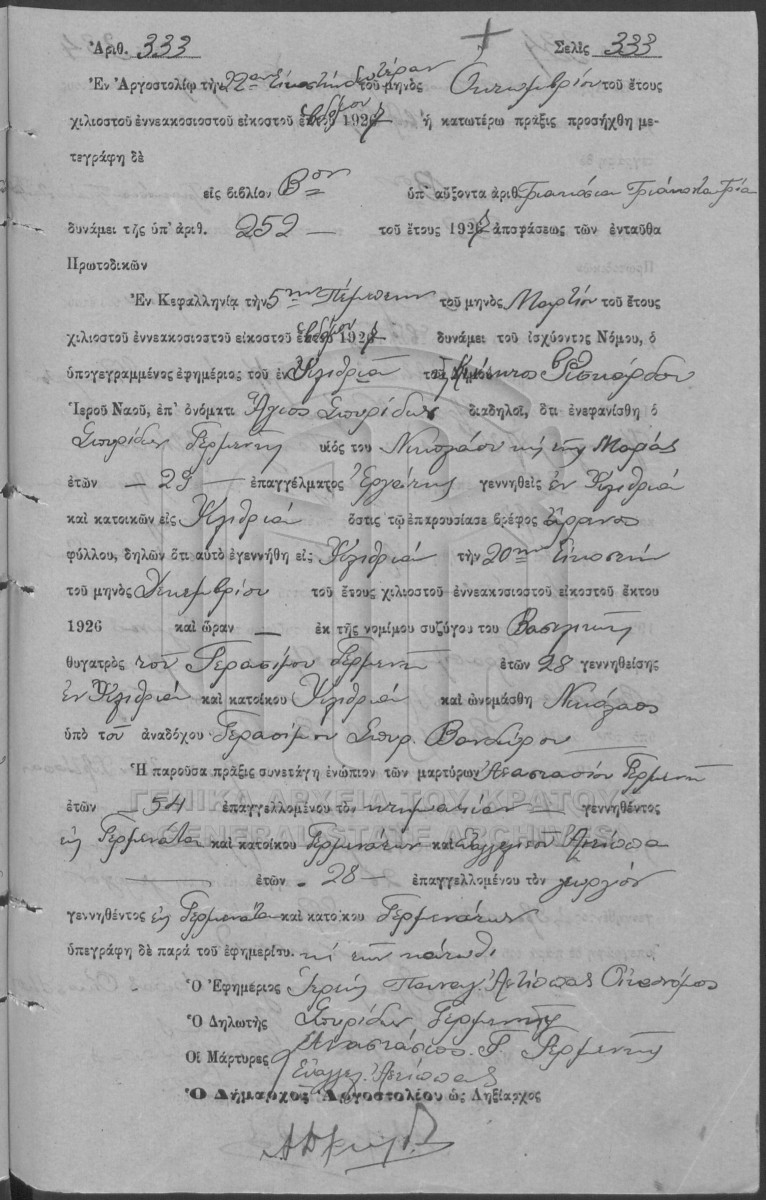 Ἀριθ. 333 Σελὶς 333
Ἐν Ἀργοστολίῳ τὴν 22αν Εἰκοστὴν δευτέραν τοῦ μηνὸς Ὀκτωμβρίου τοῦ ἔτους
χιλιοστοῦ ἐννεακοσιοστοῦ εἰκοστοῦ ἑβδόμου 1927 ἡ κατωτέρω πρᾶξις προσήχθη με-
τεγράφη δὲ
εἰς βιβλίον Βον ὑπ' αὔξοντα ἀριθ. Τριακόσια Τριάκοντα Τρία
δυνάμει τῆς ὑπ' ἀριθ. 252 — τοῦ ἔτους 1927 ἀποφάσεως τῶν ἐνταῦθα
Πρωτοδικῶν
Ἐν Κεφαλληνίᾳ τὴν 5ην Πέμπτην τοῦ μηνὸς Μαρτίου τοῦ ἔτους
χιλιοστοῦ ἐννεακοσιοστοῦ εἰκοστοῦ ἑβδόμου 1927 δυνάμει τοῦ ἰσχύοντος Νόμου, ὁ
ὑπογεγραμμένος ἐφημέριος τοῦ ἐν τοῦ Δήμου
Ἱεροῦ Ναοῦ, ἐπ' ὀνόματι Ἅγιος Σπυρίδων διαδηλοῖ, ὅτι ἐνεφανίσθη ὁ
Σπυρίδων Γερμενῆς υἱὸς του Νικολάου καὶ τῆς Μαρίας
ἐτῶν — 29 — ἐπαγγέλματος Ἐργάτης γεννηθεὶς ἐν
καὶ κατοικῶν εἰς ὅστις τῷ ἐπαρουσίασε βρέφος ἄρρενος
φύλλου, δηλῶν ὅτι αὐτὸ ἐγεννήθη εἰς τὴν 20ην Εἰκοστὴν
τοῦ μηνὸς Δεκεμβρίου τοῦ ἔτους χιλιοστοῦ ἐννεακοσιοστοῦ εἰκοστοῦ ἕκτου
1926 καὶ ὥραν — ἐκ τῆς νομίμου συζύγου του Βασιλικῆς
θυγατρὸς τοῦ Γερασίμου Γερμενῆ ἐτῶν 28 γεννηθείσης
ἐν καὶ κατοίκου καὶ ὠνομάσθη Νικόλαος
ὑπὸ τοῦ ἀναδόχου Γερασίμου Σπυρ. Βανδώρου
Ἡ παροῦσα πρᾶξις συνετάγη ἐνώπιον τῶν μαρτύρων Ἀναστασίου Γερμενῆ
ἐτῶν — 54 ἐπαγγελλομένου τὸν κτηματίαν — γεννηθέντος
εἰς Γερμενάτα καὶ κατοίκου Γερμενάτων καὶ Εὐαγγέλου
— ἐτῶν — 28 — ἐπαγγελλομένου τὸν γεωργόν
γεννηθέντος εἰς Γερμενάτα καὶ κατοίκου Γερμενάτων
ὑπεγράφη δὲ παρὰ τοῦ ἐφημερίου. καὶ τῶν κάτωθι
Ὁ Ἐφημέριος Ἱερεὺς Παναγ. Οἰκονόμος
Ὁ Δηλωτὴς Σπυρίδων Γερμενῆς
Οἱ Μάρτυρες Ἀναστάσιος Γ. Γερμενῆς
Εὐάγγελ.
Ὁ Δήμαρχος Ἀργοστολίου ὡς Ληξίαρχος
ΓΕΝΙΚΑ ΑΡΧΕΙΑ ΤΟΥ ΚΡΑΤΟΥΣ
GENERAL STATE ARCHIVES